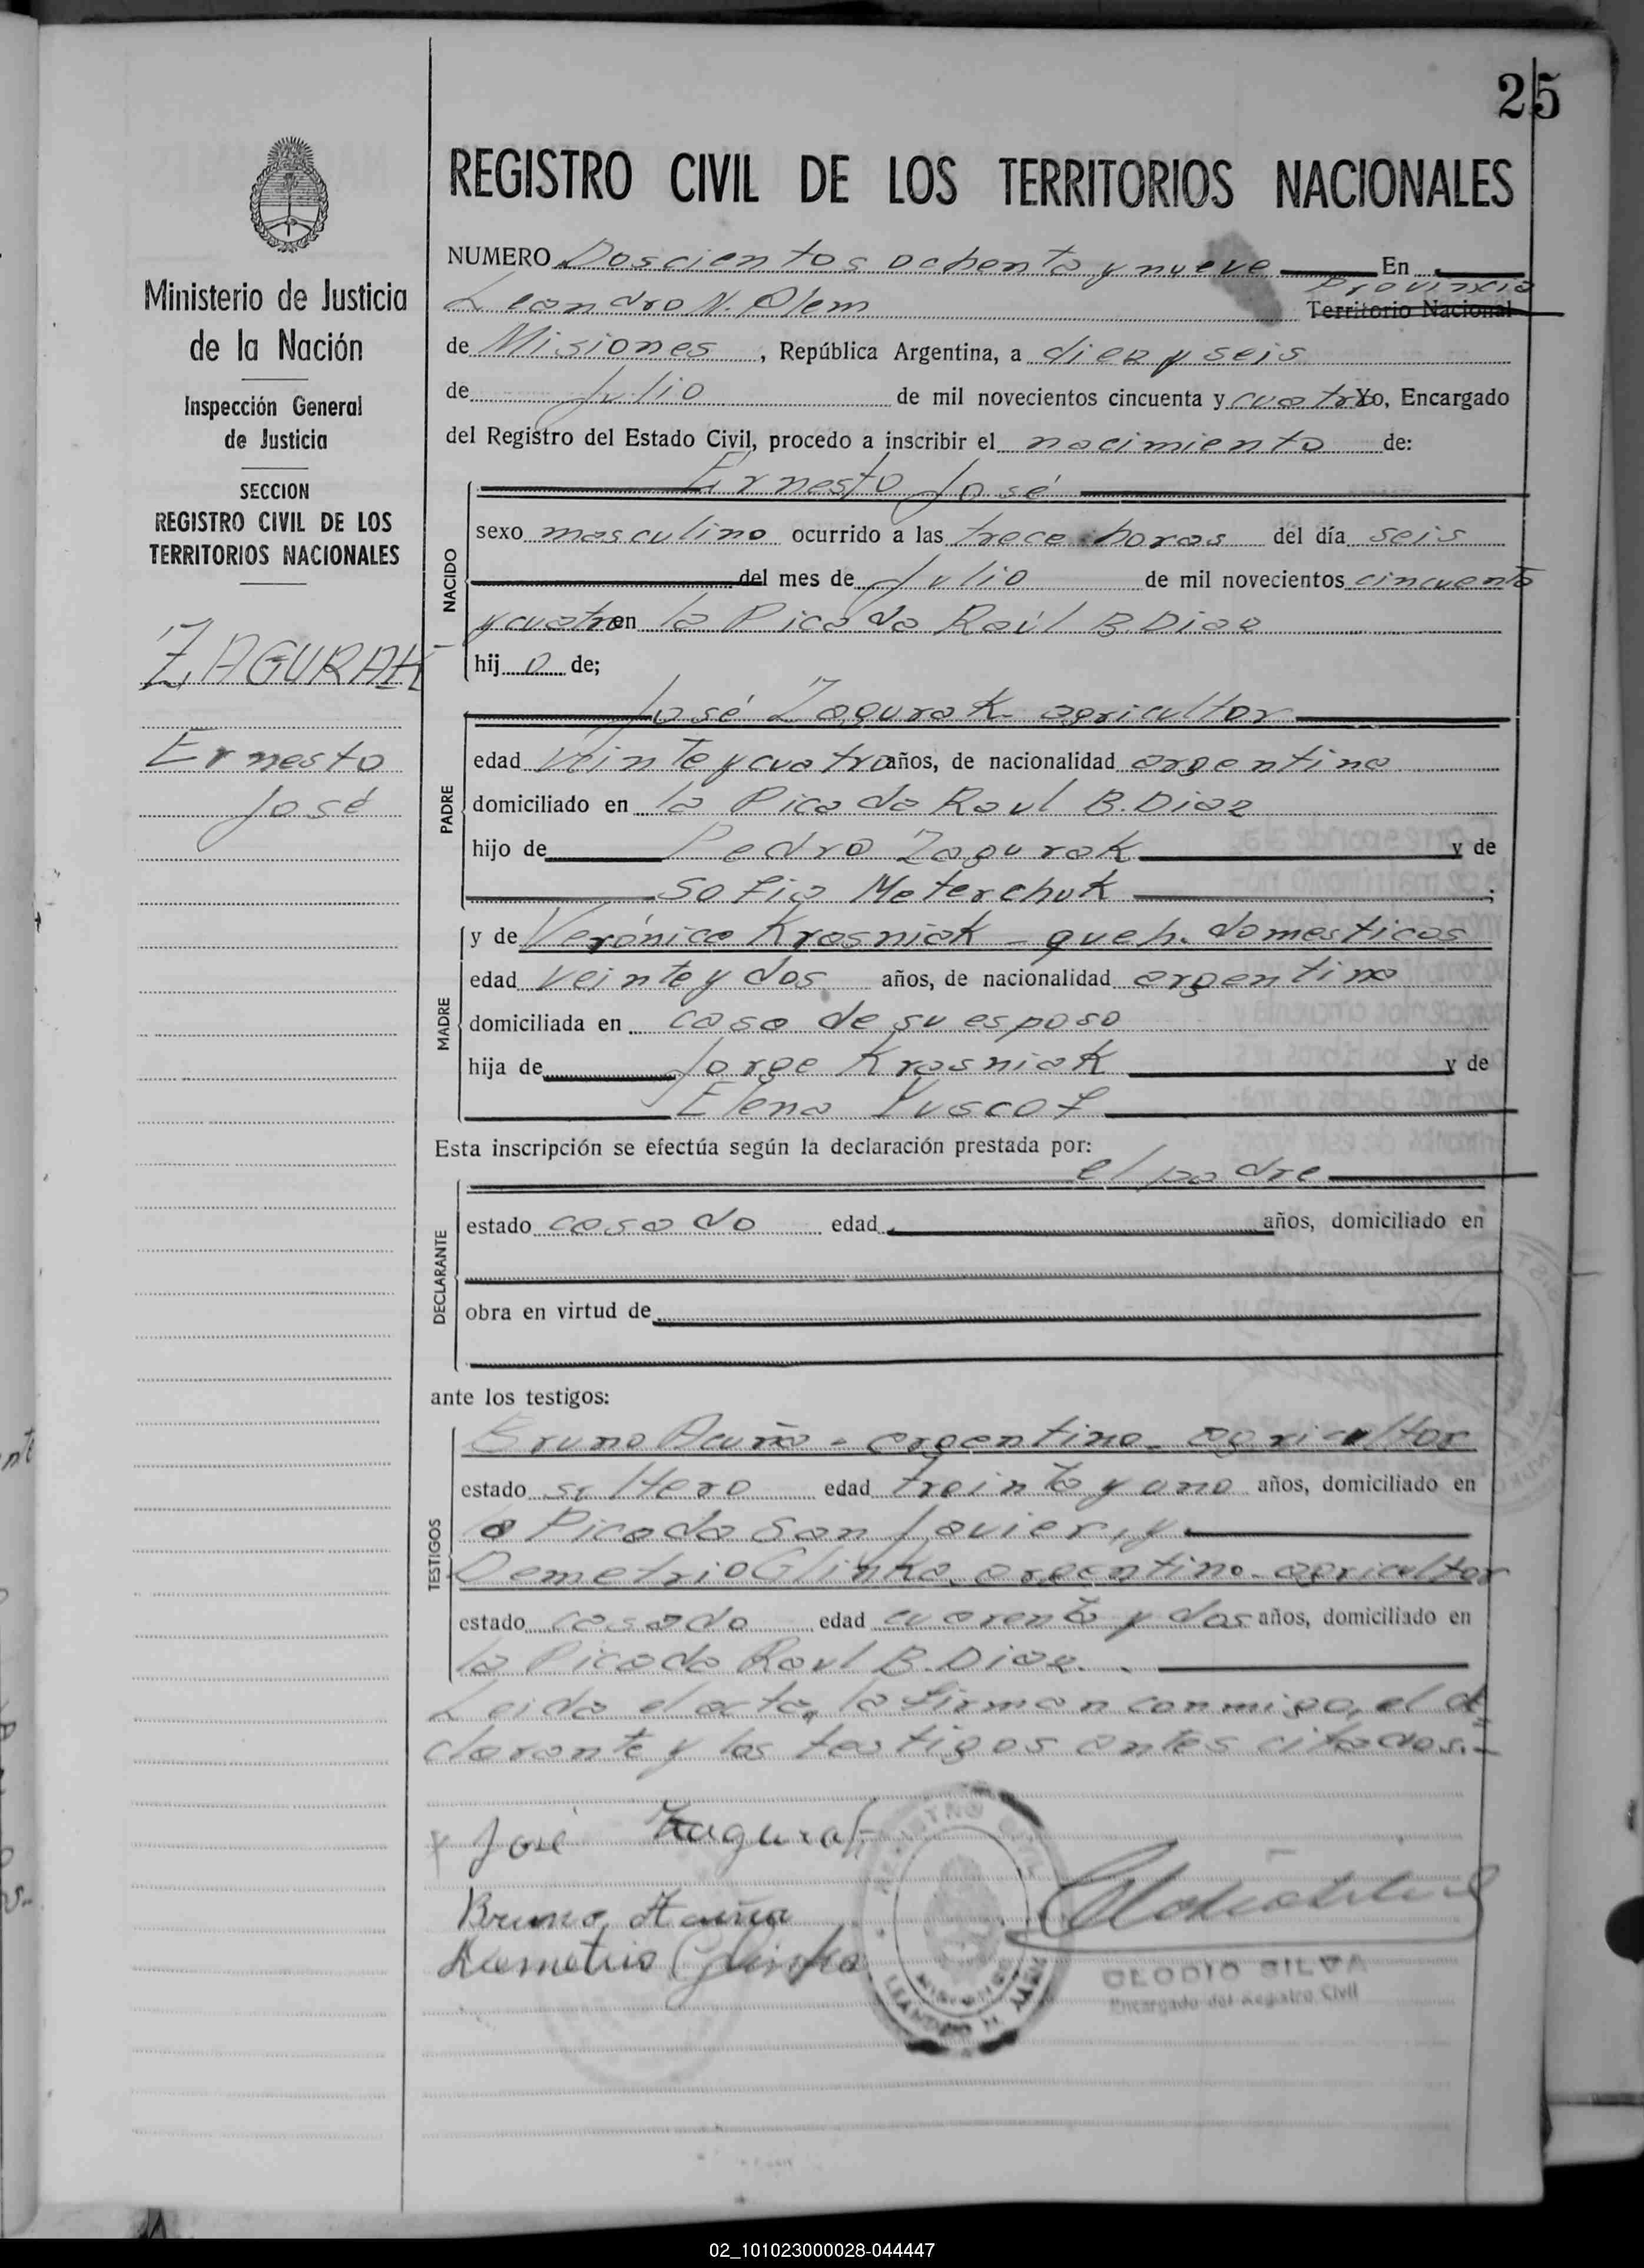 25
REGISTRO CIVIL DE LOS TERRITORIOS NACIONALES
Ministerio de Justicia
de la Nación
Inspección General
de Justicia
SECCION
REGISTRO CIVIL DE LOS
TERRITORIOS NACIONALES
ZAGURAK
Ernesto
José
NUMERO Doscientos ochenta y nueve En
Leandro N. Alem Provincia Territorio Nacional
de Misiones, República Argentina, a diez y seis
de Julio de mil novecientos cincuenta y cuatro Yo, Encargado
del Registro del Estado Civil, procedo a inscribir el nacimiento de:
NACIDO
Ernesto José
sexo masculino ocurrido a las trece horas del día seis
del mes de Julio de mil novecientos cincuenta
y cuatro en la Picada Raúl B. Diaz
hijo de;
PADRE
José Zagurak - agricultor
edad veinte y cuatro años, de nacionalidad argentina
domiciliado en la Picada Raul B. Diaz
hijo de Pedro Zagurak y de
Sofia Meterchuk;
MADRE
y de Verónica Krasniak - queh. domesticos
edad veinte y dos años, de nacionalidad argentina
domiciliada en casa de su esposo
hija de Jorge Krasniak y de
Elena Yuscof
Esta inscripción se efectúa según la declaración prestada por:
DECLARANTE
el padre
estado casado edad años, domiciliado en
obra en virtud de
ante los testigos:
TESTIGOS
Bruno Acuña - argentino - agricultor
estado soltero edad treinta y uno años, domiciliado en
la Picada San Javier, y
Demetrio Glinka. argentino - agricultor
estado casado edad cuarenta y dos años, domiciliado en
la Picada Raul B. Diaz.
Leida el acta, la firman conmigo, el de=
clarante y los testigos antes citados.-
José Zagurak
Bruno Acuña
Demetrio Glinka
CLODIO SILVA
Encargado del Registro Civil
02_101023000028-044447